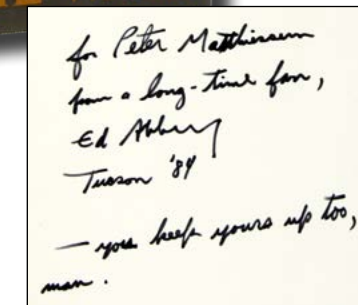 for Peter Matthiessen
from a long-time fan,
Ed Abbey
Tucson '84
— you keep yours up too,
man.